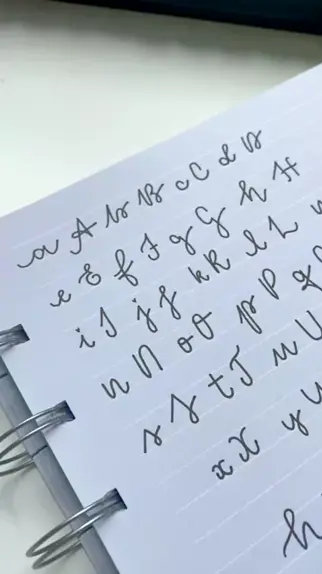 a A b B c C d D
e E f F g G h H
i I j J k K l L
n N o O p P q
s S t T u U
x X y Y
h